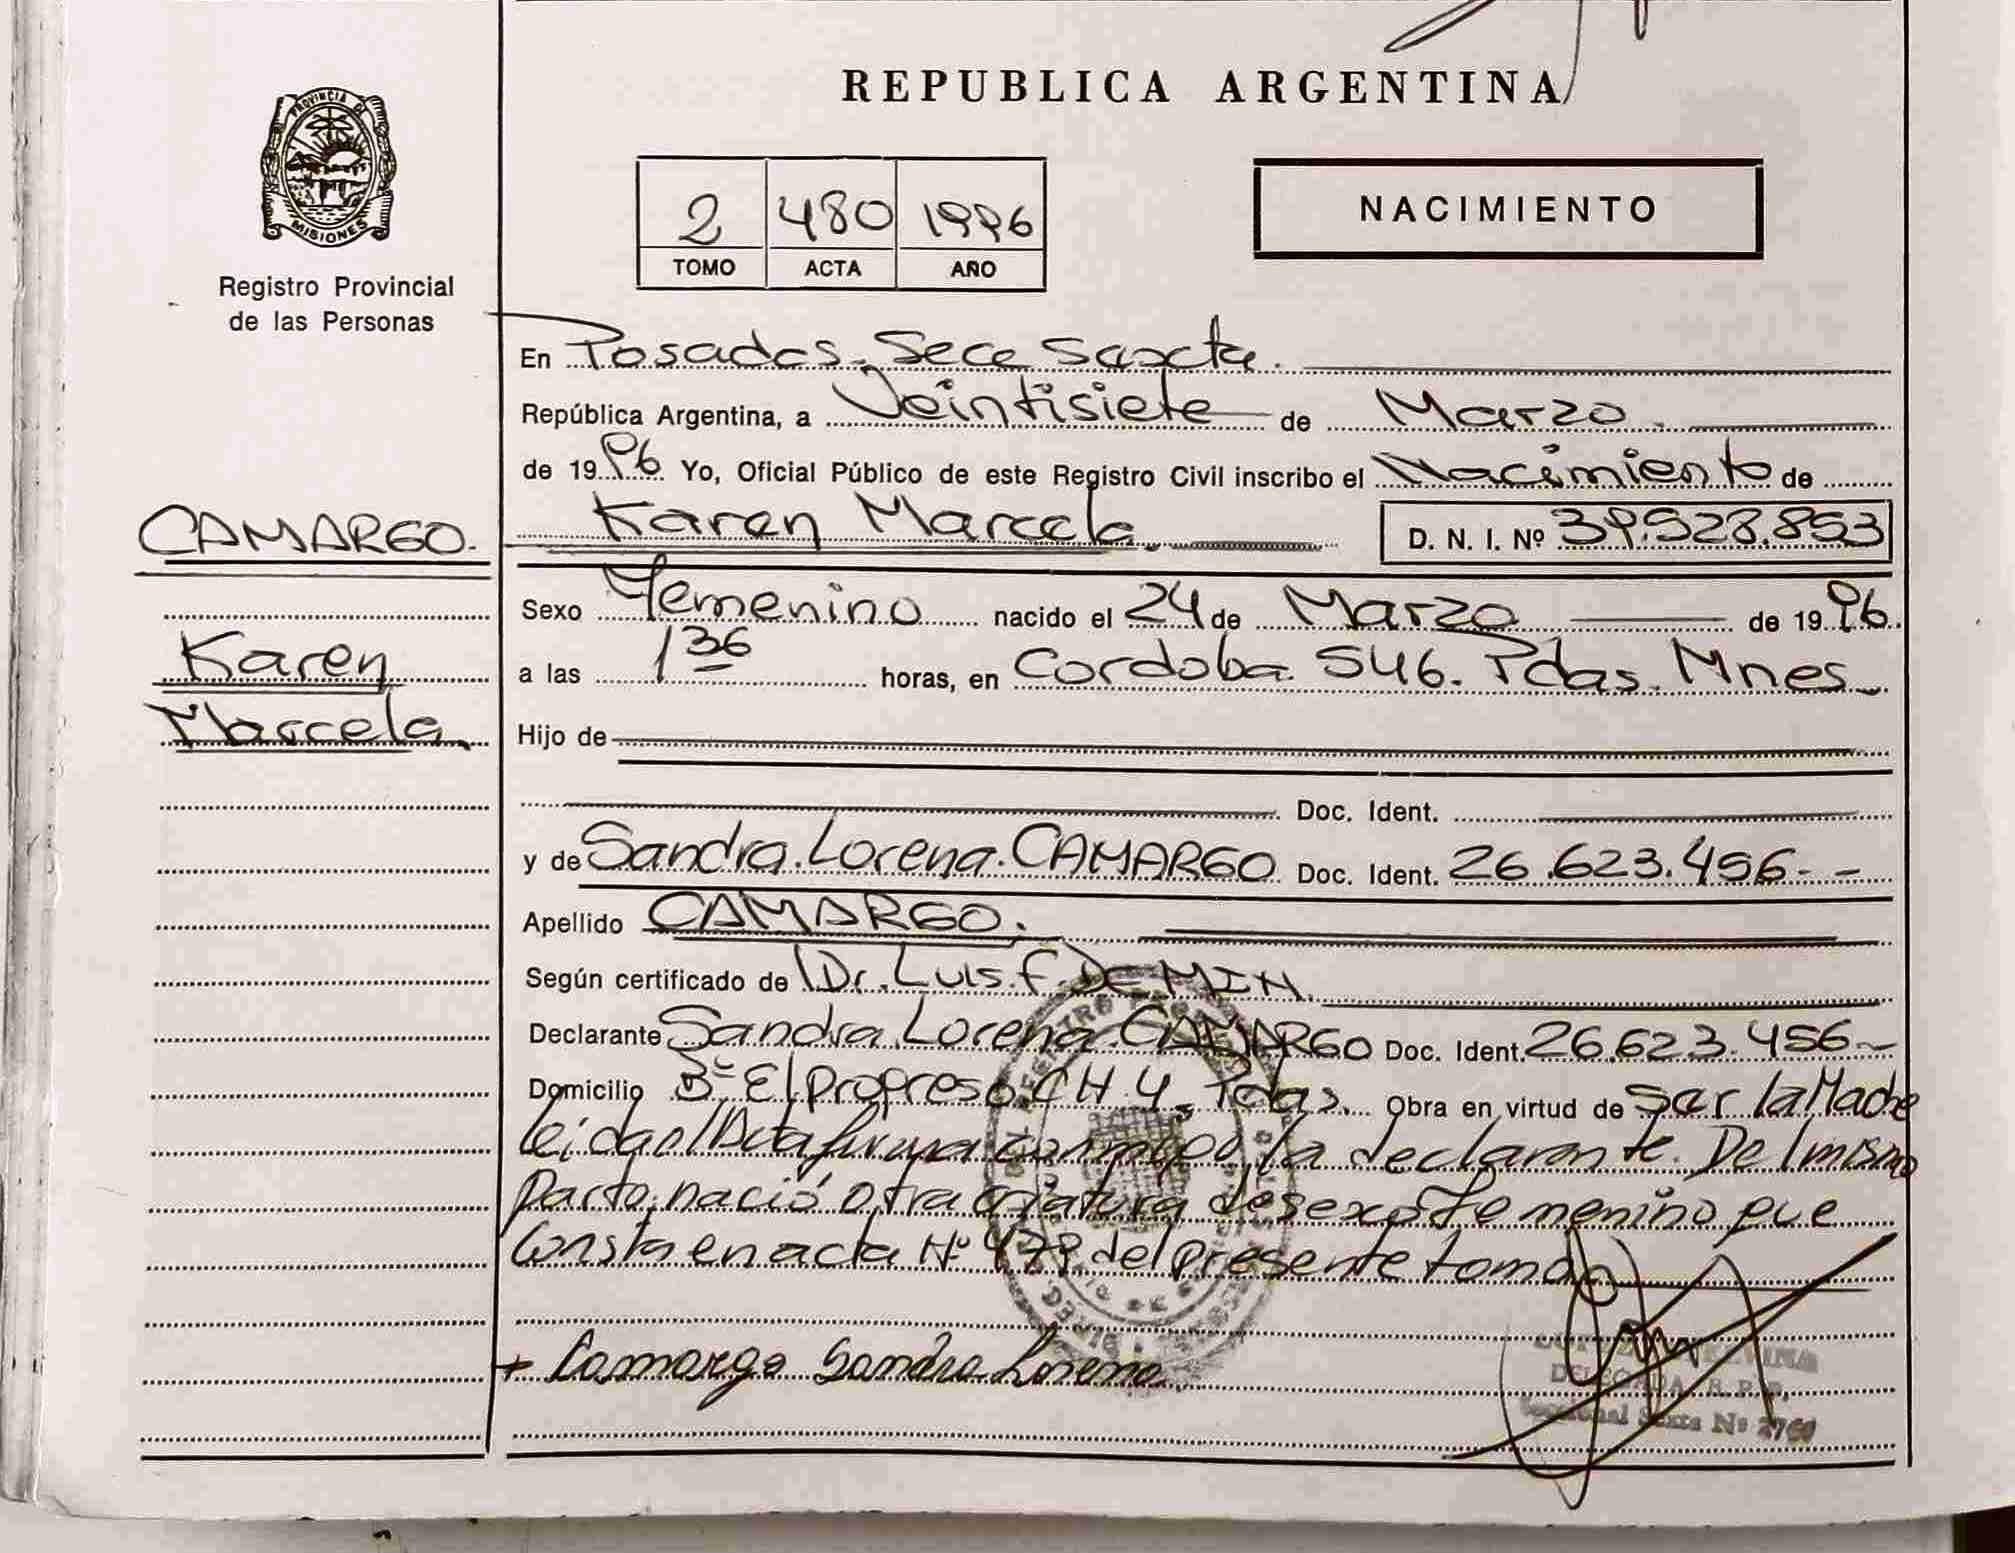 REPUBLICA ARGENTINA
PROVINCIA DE
MISIONES
Registro Provincial
de las Personas
2 480 1996
TOMO ACTA AÑO
NACIMIENTO
En Posadas. Secc Sexta.
República Argentina, a Veintisiete de Marzo
de 1996 Yo, Oficial Público de este Registro Civil inscribo el Nacimiento de
Karen Marcela D. N. I. Nº 39.528.853
CAMARGO.
Karen
Marcela
Sexo Femenino nacido el 24 de Marzo de 1996.
a las 1 36 horas, en Cordoba 546. Pdas. Mnes
Hijo de
Doc. Ident.
y de Sandra Lorena CAMARGO Doc. Ident. 26.623.456--
Apellido CAMARGO.
Según certificado de Dr. Luis F. DEMIN
Declarante Sandra Lorena CAMARGO Doc. Ident. 26.623.456-
Domicilio Bº El Progreso CH 4. Pdas. Obra en virtud de Ser la Madre
leida el Acta firma conmigo la declarante. Del mismo
parto nació otra criatura de sexo Femenino que
Consta en acta Nº 479 del presente tomo
+ Camargo Sandra Lorena
DELEGADA R.P.P.
Seccional Sexta Nº 2760